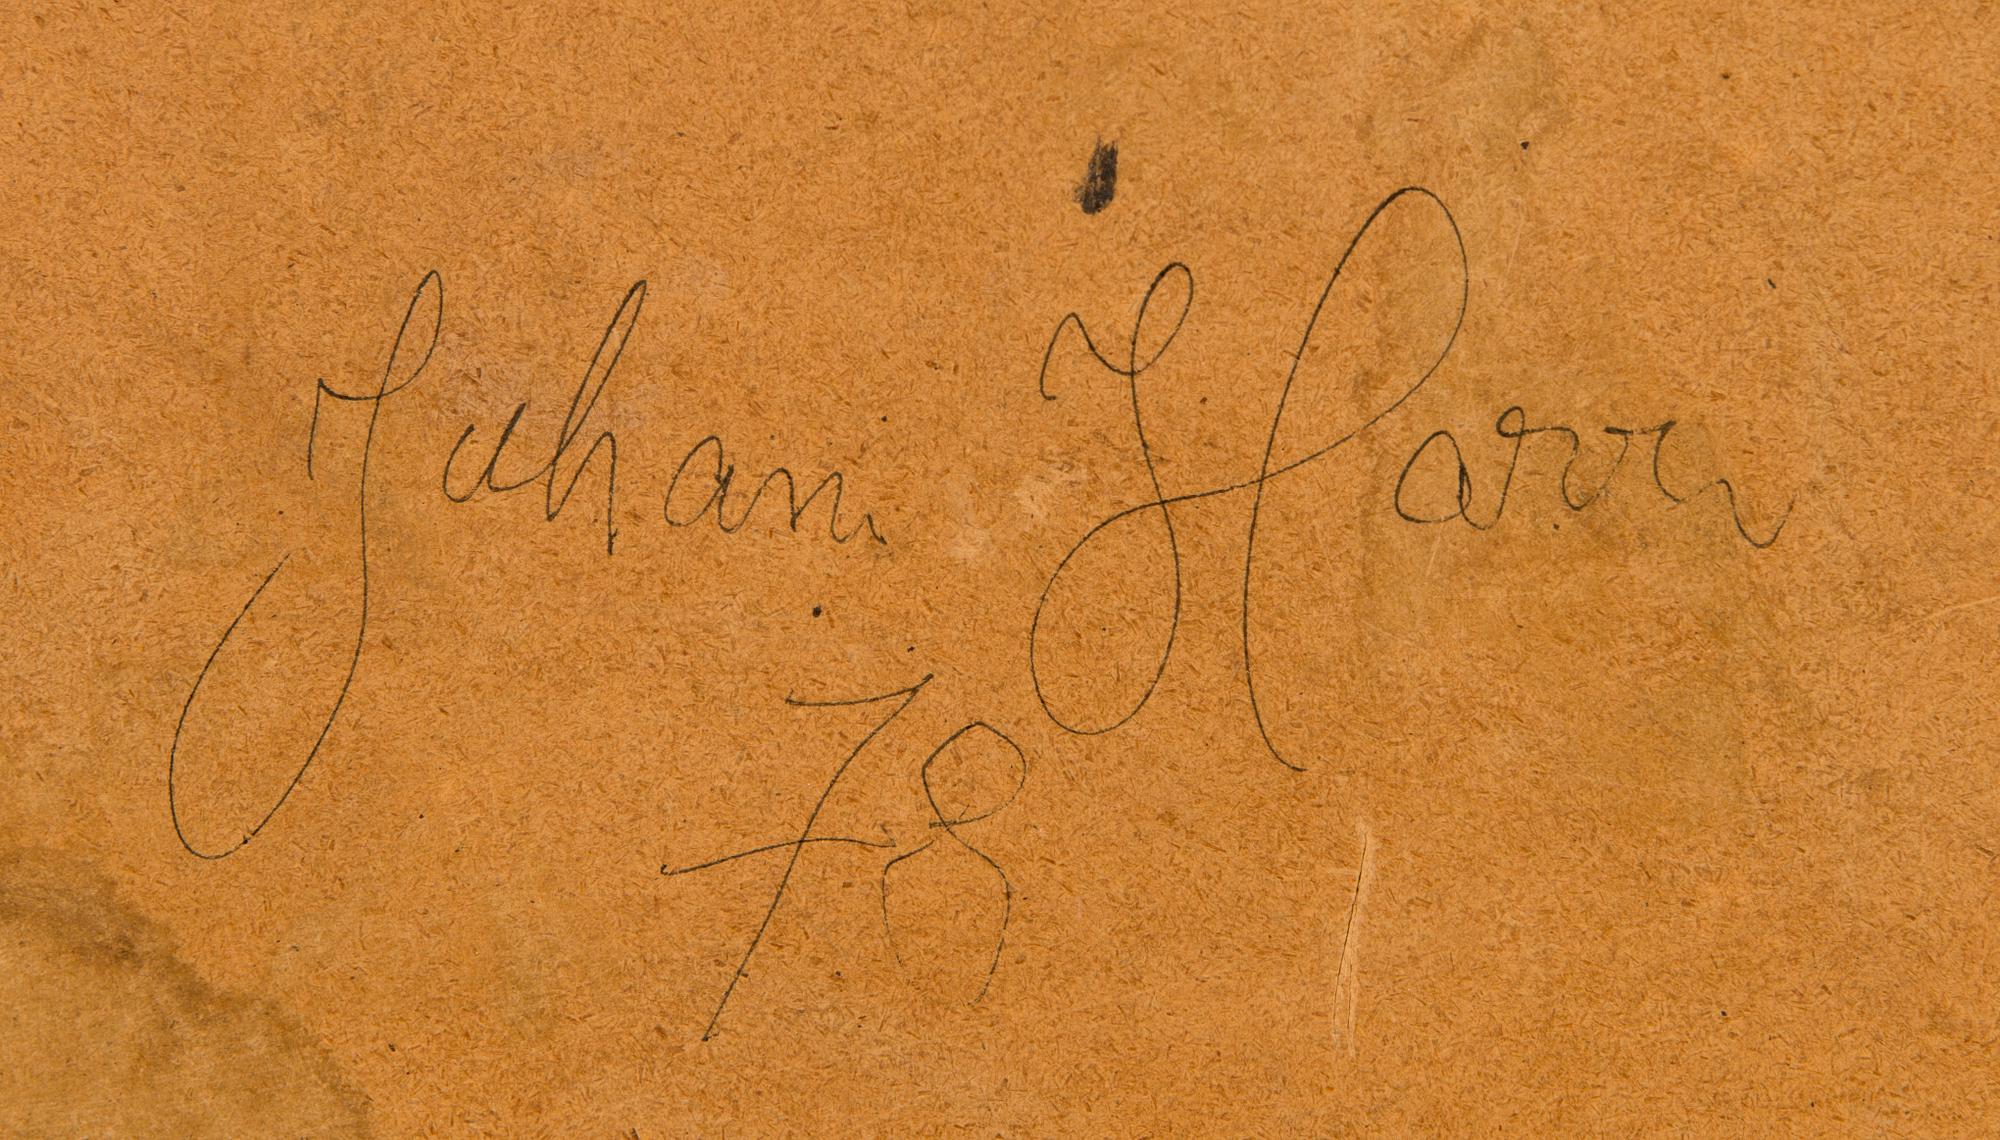 Juhani Harri
78